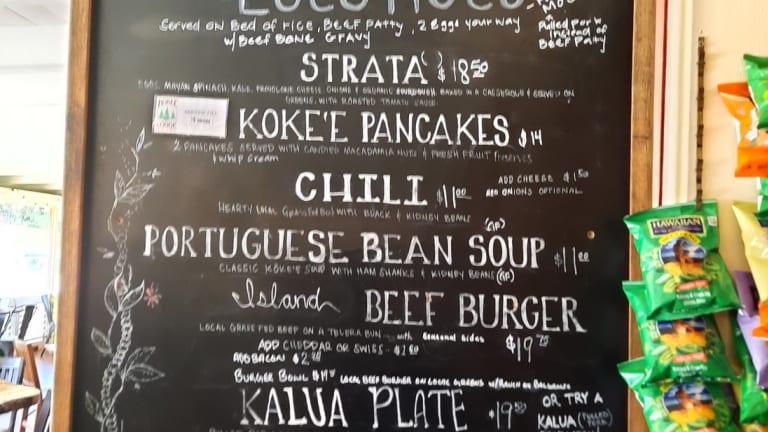 LOCO MOCO
Served on Bed of Rice, Beef Patty, 2 eggs your way
w/ Beef Bone Gravy
Pulled Pork
Instead of
Beef Patty
STRATA $18.50
EGGS, MAYAN SPINACH, KALE, PROVOLONE CHEESE, ONIONS & ORGANIC SOURDOUGH, BAKED IN A CASSEROLE & SERVED ON
GREENS, WITH ROASTED TOMATO SAUCE
KOKE'E PANCAKES $14
2 PANCAKES SERVED WITH CANDIED MACADAMIA NUTS & FRESH FRUIT
& WHIP CREAM
CHILI $11.00
ADD CHEESE $1.50
ADD ONIONS OPTIONAL
HEARTY LOCAL Grass Fed Beef WITH BLACK & KIDNEY BEANS
(GF)
PORTUGUESE BEAN SOUP $11.00
CLASSIC KOKE'E SOUP WITH HAM SHANKS & KIDNEY BEANS (GF)
Island BEEF BURGER
LOCAL GRASS FED BEEF ON A TELERA BUN with Seasonal Sides
$19.75
ADD CHEDDAR OR SWISS $1.50
ADD BACON
BURGER BOWL LOCAL BEEF BURGER ON LOCAL GREENS W/ RANCH OR BALSAMIC
KALUA PLATE $19.50
OR, TRY A
KALUA (PULLED
PORK)
HAWAIIAN